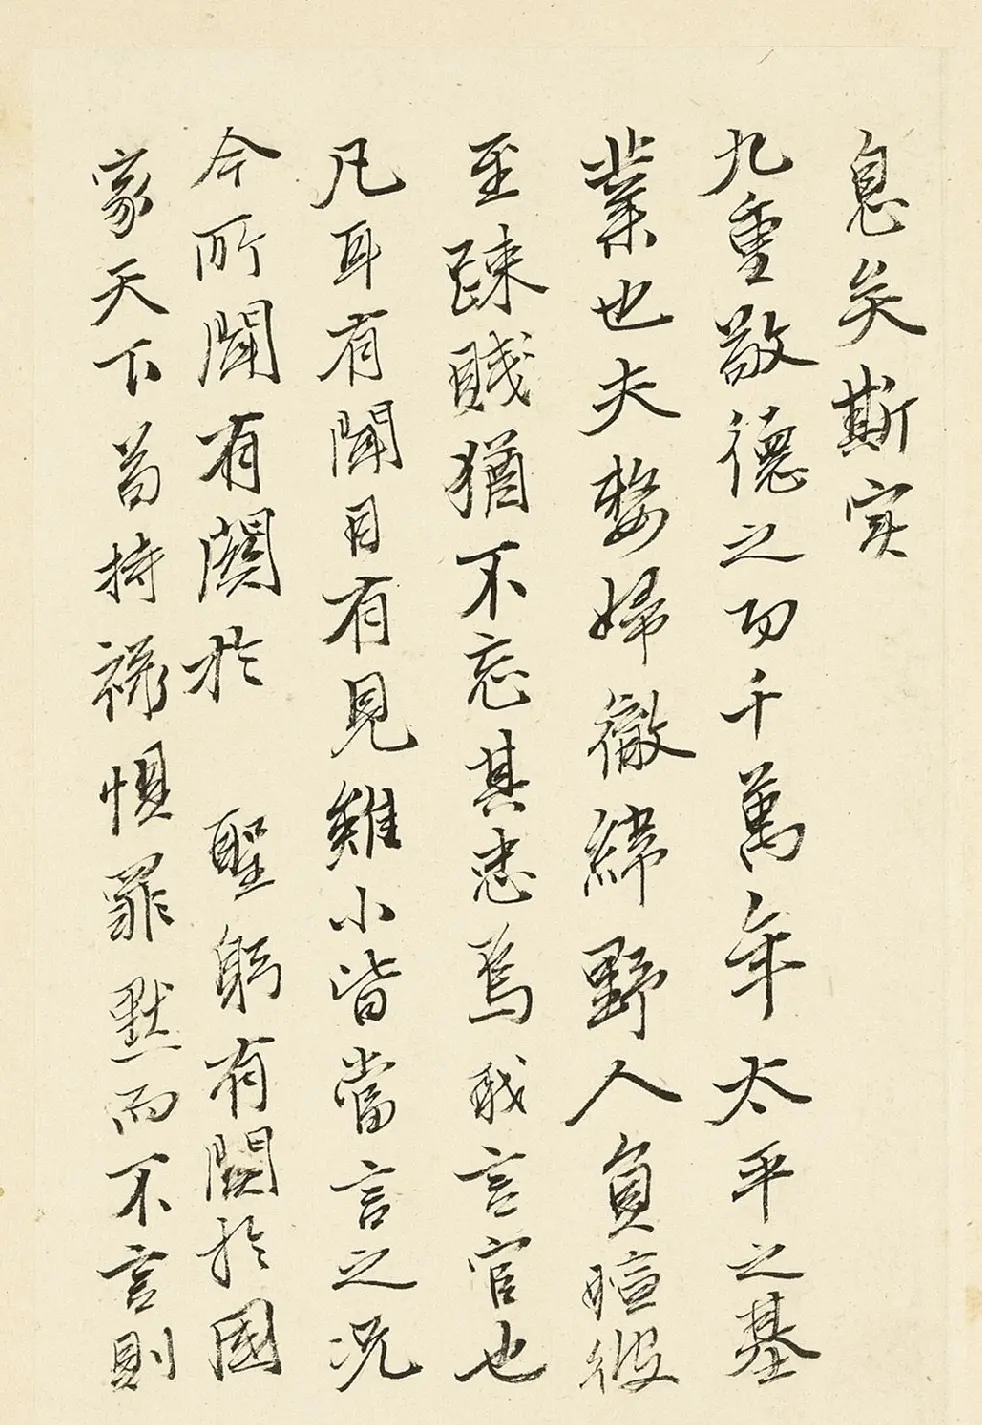 息矣斯实
九重敬德之功千萬年太平之基
業也夫嫠婦徹緯野人負暄彼
至踈賤猶不忘其忠焉我言官也
凡耳有聞目有見雖小皆當言之况
今所聞有関於 聖躬有関於國
家天下苟持祿懼罪默而不言則